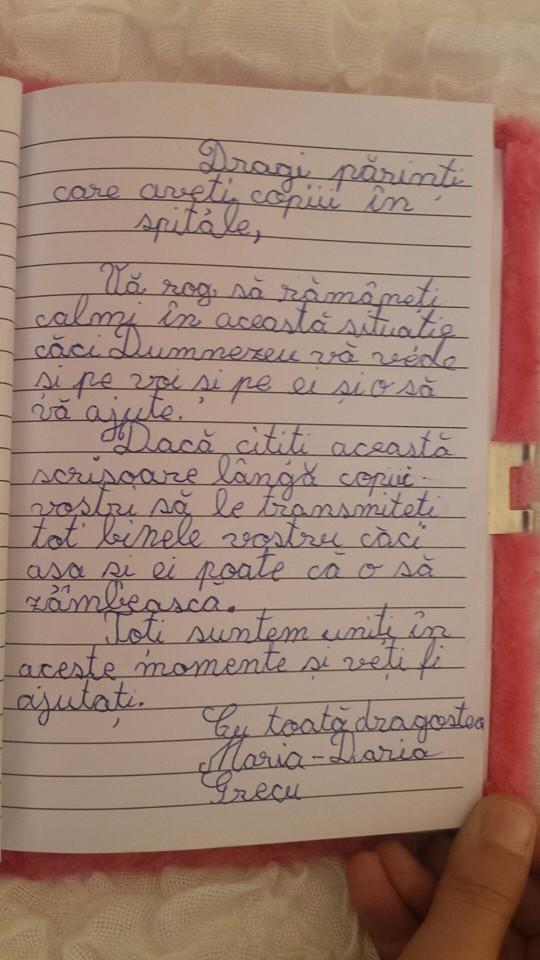 Dragi părinți
care aveți copiii în
spitale,
Vă rog să rămâneți
calmi în această situație
căci Dumnezeu vă vede
și pe voi și pe ei și o să
vă ajute.
Dacă citiți această
scrisoare lângă copiii
voștri să le transmiteți
tot binele vostru căci
așa și ei poate că o să
zâmbească.
Toți suntem uniți în
aceste momente și veți fi
ajutați.
Cu toată dragostea
Maria-Daria
Grecu